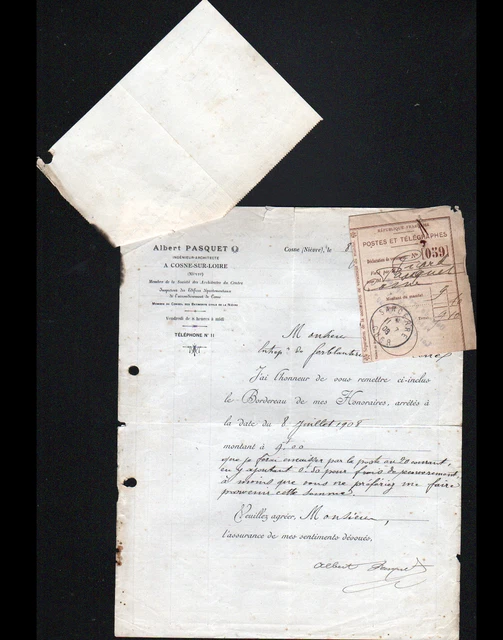 Albert PASQUET
INGÉNIEUR-ARCHITECTE
A COSNE-SUR-LOIRE
(NIÈVRE)
Membre de la Société des Architectes du Centre
Inspecteur des Edifices Départementaux
de l'arrondissement de Cosne
MEMBRE DU CONSEIL DES BATIMENTS CIVILS DE LA NIÈVRE
Vendredi de 8 heures à midi
TÉLÉPHONE Nº 11
Cosne (Nièvre), le 8
RÉPUBLIQUE FRANÇAISE
POSTES ET TÉLÉGRAPHES
059
Pasquet
Cosne
Montant du mandat
Monsieur
Entrepr de ferblanterie
J'ai l'honneur de vous remettre ci-inclus
le Bordereau de mes Honoraires, arrêtés à
la date du 8 juillet 1908
montant à 9.00
que je ferai encaisser par la poste au 20 courant,
en y ajoutant 0.50 pour frais de recouvrement,
à moins que vous ne préfériez me faire
parvenir cette somme.
Veuillez agréer, Monsieur,
l'assurance de mes sentiments dévoués.
Albert Pasquet